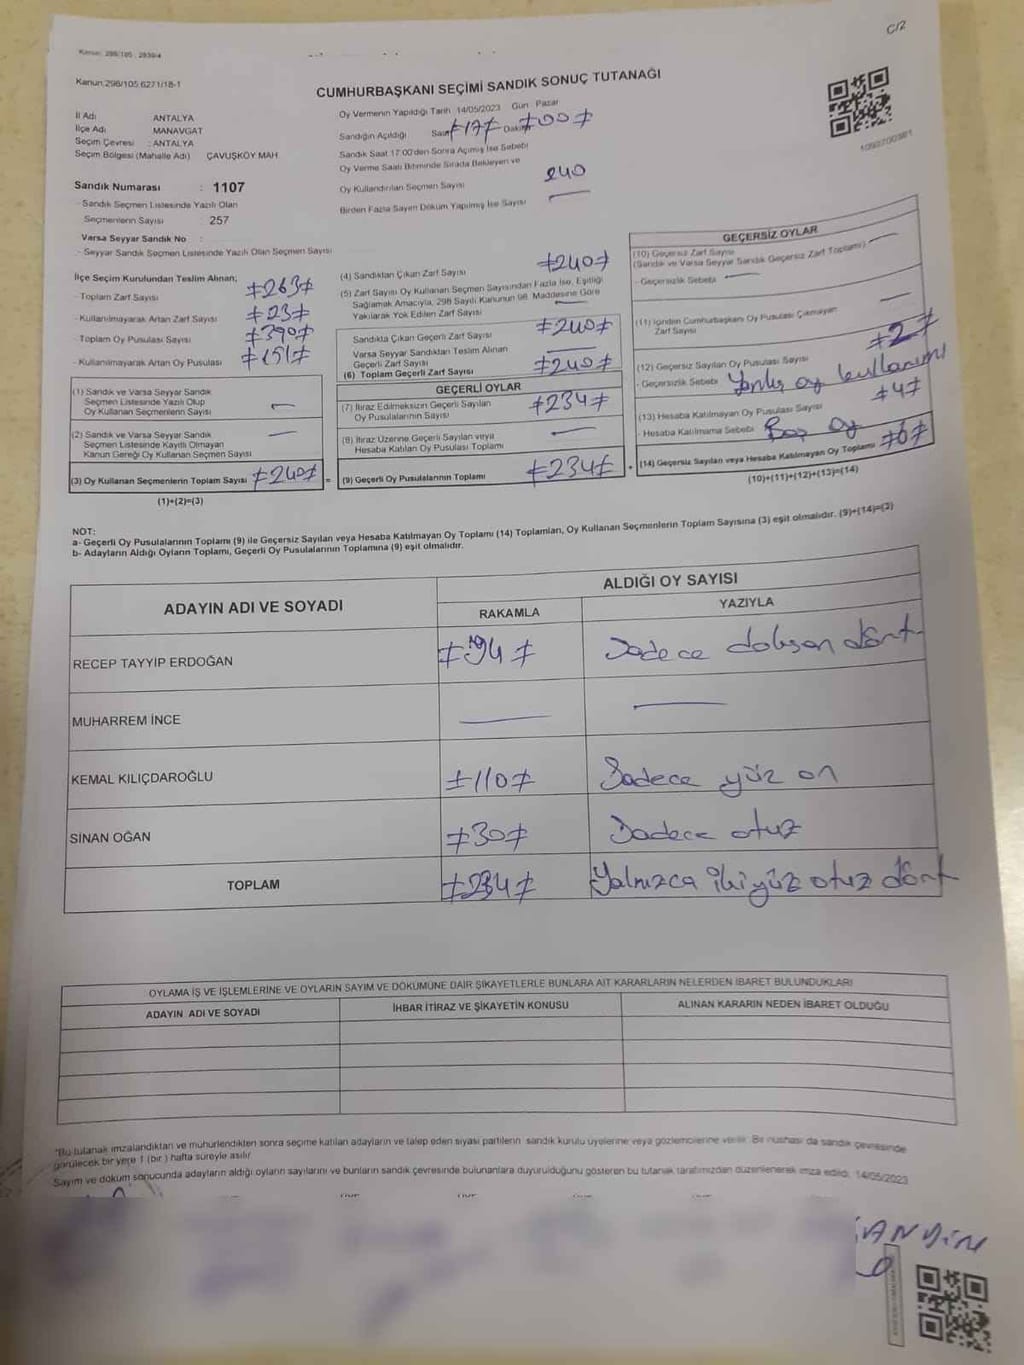 C/2
Kanun: 298/105 : 2839/4
Kanun:298/105:6271/18-1
CUMHURBAŞKANI SEÇİMİ SANDIK SONUÇ TUTANAĞI
İl Adı : ANTALYA
İlçe Adı MANAVGAT
Seçim Çevresi : ANTALYA
Seçim Bölgesi (Mahalle Adı) ÇAVUŞKÖY MAH
Sandık Numarası : 1107
- Sandık Seçmen Listesinde Yazılı Olan
Seçmenlerin Sayısı : 257
Varsa Seyyar Sandık No :
- Seyyar Sandık Seçmen Listesinde Yazılı Olan Seçmen Sayısı
Oy Vermenin Yapıldığı Tarih :14/05/2023 Gün : Pazar
Sandığın Açıldığı Saat ≠17≠ Dakika ≠00≠
Sandık Saat 17:00'den Sonra Açılmış İse Sebebi
Oy Verme Saati Bitiminde Sırada Bekleyen ve
Oy Kullandırılan Seçmen Sayısı 240
Birden Fazla Sayım Döküm Yapılmış İse Sayısı —
1092700381
İlçe Seçim Kurulundan Teslim Alınan;
- Toplam Zarf Sayısı ≠263≠
- Kullanılmayarak Artan Zarf Sayısı ≠23≠
- Toplam Oy Pusulası Sayısı ≠390≠
- Kullanılmayarak Artan Oy Pusulası ≠151≠
(1) Sandık ve Varsa Seyyar Sandık
Seçmen Listesinde Yazılı Olup
Oy Kullanan Seçmenlerin Sayısı —
(2) Sandık ve Varsa Seyyar Sandık
Seçmen Listesinde Kayıtlı Olmayan
Kanun Gereği Oy Kullanan Seçmen Sayısı —
(3) Oy Kullanan Seçmenlerin Toplam Sayısı ≠240≠
(1)+(2)=(3)
(4) Sandıktan Çıkan Zarf Sayısı ≠240≠
(5) Zarf Sayısı Oy Kullanan Seçmen Sayısından Fazla İse, Eşitliği
Sağlamak Amacıyla, 298 Sayılı Kanunun 98. Maddesine Göre
Yakılarak Yok Edilen Zarf Sayısı —
Sandıkta Çıkan Geçerli Zarf Sayısı ≠240≠
Varsa Seyyar Sandıktan Teslim Alınan
Geçerli Zarf Sayısı —
(6) Toplam Geçerli Zarf Sayısı ≠240≠
GEÇERLİ OYLAR
(7) İtiraz Edilmeksizin Geçerli Sayılan
Oy Pusulalarının Sayısı ≠234≠
(8) İtiraz Üzerine Geçerli Sayılan veya
Hesaba Katılan Oy Pusulası Toplamı —
= (9) Geçerli Oy Pusulalarının Toplamı ≠234≠ +
GEÇERSİZ OYLAR
(10) Geçersiz Zarf Sayısı
(Sandık ve Varsa Seyyar Sandık Geçersiz Zarf Toplamı) —
- Geçersizlik Sebebi —
(11) İçinden Cumhurbaşkanı Oy Pusulası Çıkmayan
Zarf Sayısı —
(12) Geçersiz Sayılan Oy Pusulası Sayısı ≠2≠
- Geçersizlik Sebebi Yanlış oy kullanımı
(13) Hesaba Katılmayan Oy Pusulası Sayısı ≠4≠
- Hesaba Katılmama Sebebi Boş Oy
(14) Geçersiz Sayılan veya Hesaba Katılmayan Oy Toplamı ≠6≠
(10)+(11)+(12)+(13)=(14)
NOT:
a- Geçerli Oy Pusulalarının Toplamı (9) ile Geçersiz Sayılan veya Hesaba Katılmayan Oy Toplamı (14) Toplamları, Oy Kullanan Seçmenlerin Toplam Sayısına (3) eşit olmalıdır. (9)+(14)=(3)
b- Adayların Aldığı Oyların Toplamı, Geçerli Oy Pusulalarının Toplamına (9) eşit olmalıdır.
ADAYIN ADI VE SOYADI
ALDIĞI OY SAYISI
RAKAMLA YAZIYLA
RECEP TAYYİP ERDOĞAN ≠94≠ Sadece doksan dört
MUHARREM İNCE — —
KEMAL KILIÇDAROĞLU ≠110≠ Sadece yüz on
SİNAN OĞAN ≠30≠ Sadece otuz
TOPLAM ≠234≠ Yalnızca ikiyüz otuz dört
OYLAMA İŞ VE İŞLEMLERİNE VE OYLARIN SAYIM VE DÖKÜMÜNE DAİR ŞİKAYETLERLE BUNLARA AİT KARARLARIN NELERDEN İBARET BULUNDUKLARI
ADAYIN ADI VE SOYADI İHBAR İTİRAZ VE ŞİKAYETİN KONUSU ALINAN KARARIN NEDEN İBARET OLDUĞU
*Bu tutanak imzalandıktan ve mühürlendikten sonra seçime katılan adayların ve talep eden siyasi partilerin sandık kurulu üyelerine veya gözlemcilerine verilir. Bir nüshası da sandık çevresinde
görülecek bir yere 1 (bir ) hafta süreyle asılır.
Sayım ve döküm sonucunda adayların aldığı oyların sayılarını ve bunların sandık çevresinde bulunanlara duyurulduğunu gösteren bu tutanak tarafımızdan düzenlenerek imza edildi. 14/05/2023